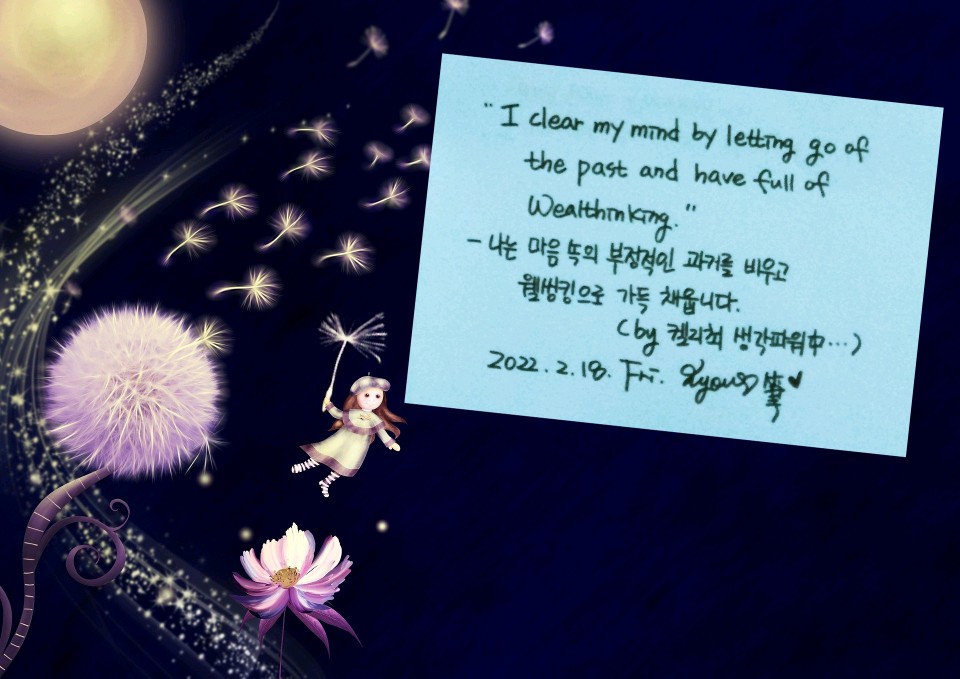 "I clear my mind by letting go of
the past and have full of
Wealthinking."
- 나는 마음 쏙의 부정적인 과거를 비우고
웰씽킹으로 가득 채웁니다.
(by 켈리최 생각파워中…)
2022. 2. 18. Fri.